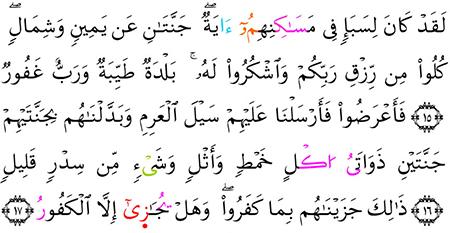 لَقَدْ كَانَ لِسَبَإٍ فِى مَسَـٰكِنِهِمُۥٓ ءَايَةٌ ۖ جَنَّتَـٰنِ عَن يَمِينٍ وَشِمَالٍ ۖ
كُلُوا۟ مِن رِّزْقِ رَبِّكُمْ وَٱشْكُرُوا۟ لَهُۥ ۚ بَلْدَةٌ طَيِّبَةٌ وَرَبٌّ غَفُورٌ
﴿١٥﴾ فَأَعْرَضُوا۟ فَأَرْسَلْنَا عَلَيْهِمْ سَيْلَ ٱلْعَرِمِ وَبَدَّلْنَـٰهُم بِجَنَّتَيْهِمْ
جَنَّتَيْنِ ذَوَاتَىُ اكْلٍ خَمْطٍ وَأَثْلٍ وَشَىْءٍ مِّن سِدْرٍ قَلِيلٍ
﴿١٦﴾ ذَٰلِكَ جَزَيْنَـٰهُم بِمَا كَفَرُوا۟ ۖ وَهَلْ يُجَـٰزَىٰٓ إِلَّا ٱلْكَفُورُ ﴿١٧﴾